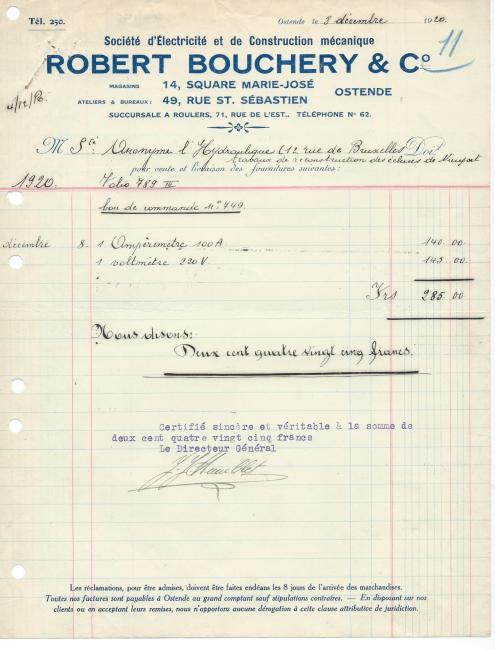 Tél. 250.
Ostende le 8 décembre 1920.
Société d'Électricité et de Construction mécanique
ROBERT BOUCHERY & Co
11
MAGASINS 14, SQUARE MARIE-JOSÉ
ATELIERS & BUREAUX : 49, RUE ST. SÉBASTIEN
OSTENDE
SUCCURSALE A ROULERS, 71, RUE DE L'EST.. TÉLÉPHONE No 62.
M Sté Anonyme l'Hydraulique 612 rue de Bruxelles Doit
travaux de reconstruction des écluses de Nieuport
pour vente et livraison des fournitures suivantes :
1920. Folio 789 III
bon de commande No 749.
décembre 8. 1 Ampèremètre 100 A 140 00
1 voltmètre 220 V 145 00.
Frs 285 00
Nous disons:
Deux cent quatre vingt cinq francs.
Certifié sincère et véritable à la somme de
deux cent quatre vingt cinq francs
Le Directeur Général
Les réclamations, pour être admises, doivent être faites endéans les 8 jours de l'arrivée des marchandises.
Toutes nos factures sont payables à Ostende au grand comptant sauf stipulations contraires. — En disposant sur nos
clients ou en acceptant leurs remises, nous n'apportons aucune dérogation à cette clause attributive de juridiction.